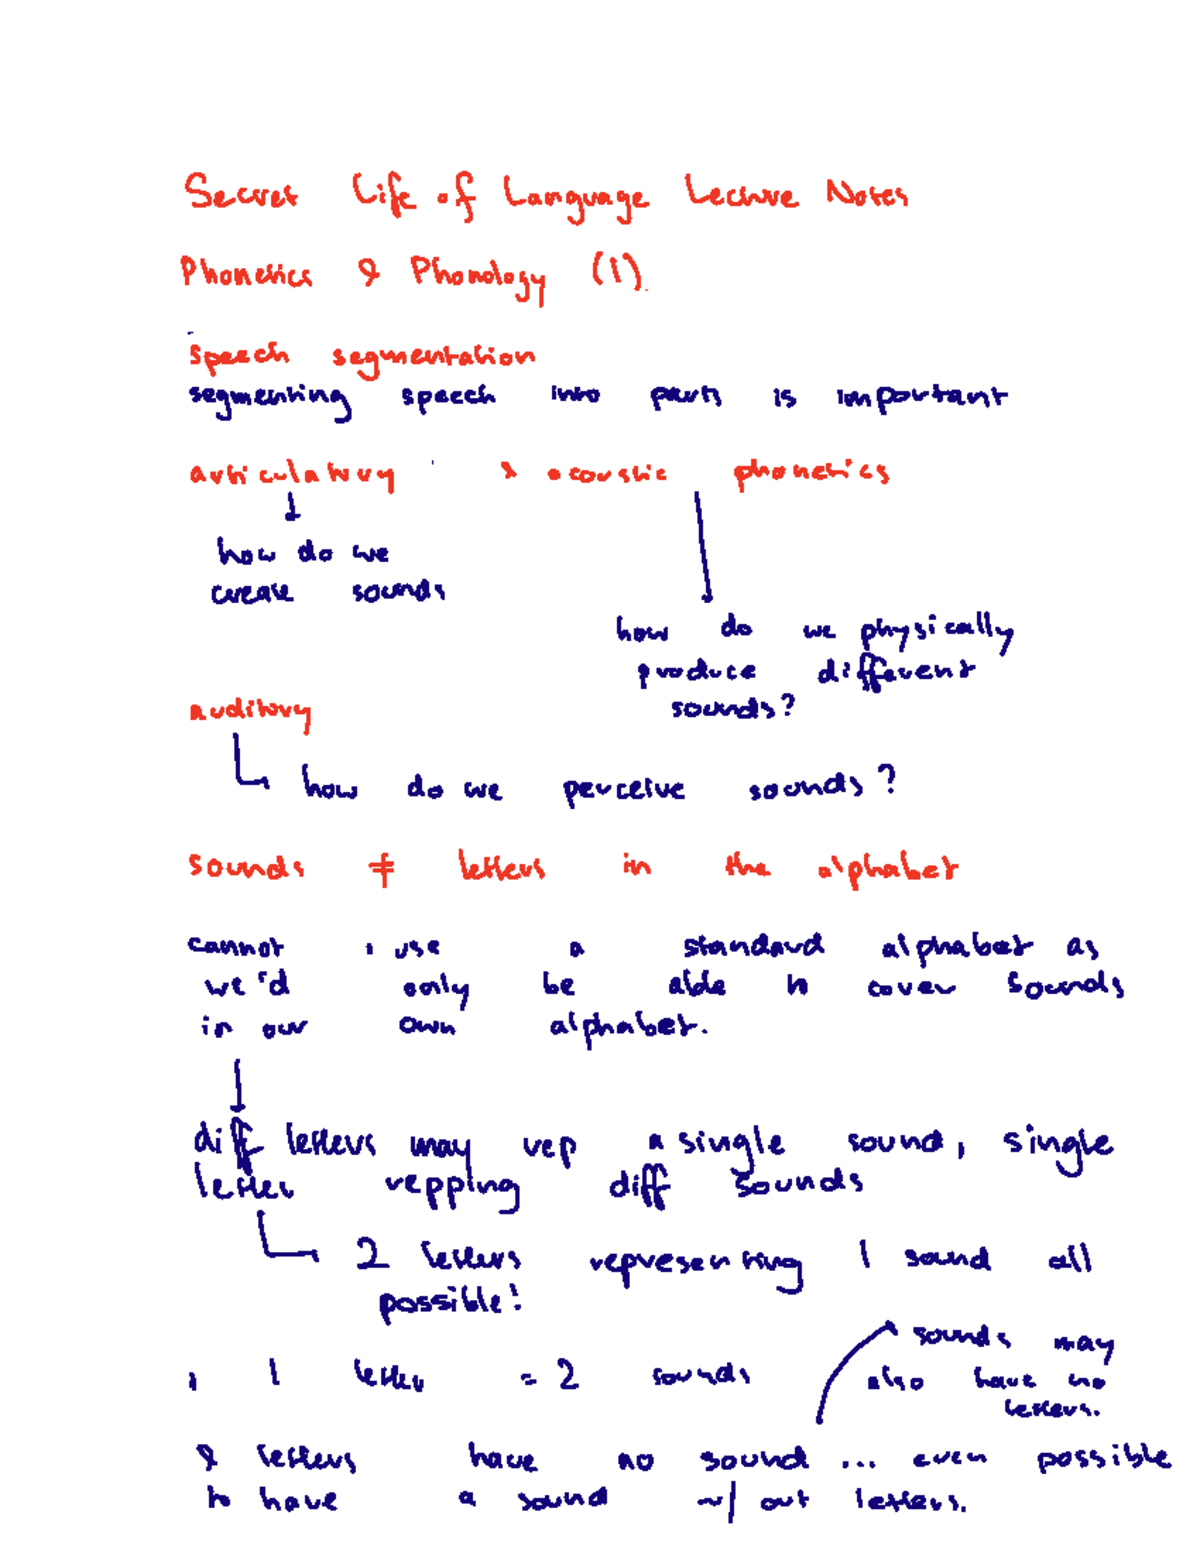 Secret Life of Language Lecture Notes
Phonetics & Phonology (1).
speech segmentation
segmenting speech into parts is important
articulatory & acoustic phonetics
how do we
create sounds
how do we physically
produce different
sounds?
auditory
how do we perceive sounds?
sounds ≠ letters in the alphabet
cannot use a standard alphabet as
we'd only be able to cover sounds
in our own alphabet.
diff letters may rep a single sound, single
letter repping diff sounds
2 letters representing 1 sound all
possible!
1 letter = 2 sounds
sounds may
also have no
letters.
& letters have no sound ... even possible
to have a sound w/ out letters.